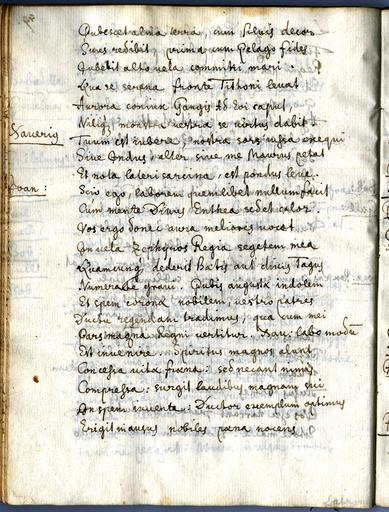 Pubescet alma terra, cum silvis decor
Suus redibit, prima cum Pelago fides
Iubebit alto vela committi mari.
Qua se serena fronte Tithoni levat
Aurora coniux Gangis et Eoi caput,
Nilique monstra vestra se virtus dabit.
Xaverius
Tuum est iubere, nostra sors iussa exequi
Sive Indus, alter sive me Maurus petat
Et nota lateri sarcina, est pondus leve.
Ioan:
Scio ego, laborem quemlibet nullum facit
Cum mente Divus Enthea sedet calor.
Vos ergo donec aura meliores vocet
In vela Zephyros Regia segetem mea
Quamcunque dederit Bætis aut dives Tagus
Numerate gravi. Pubis augustæ indolem
Et spem coronæ nobilem, vestro patres
Ductu regendam tradimus, qua cum mei
Pars magna Regni vertitur. Xau: Labo modum
Est invenire. Spiritus magnos alunt
Concessa vitæ fræna: sed necant nimis
Compressa: surgit laudibus magnam sui
In spem iuventa: Ductor exemplum optimus
Erigit in ausus nobiles pæna nocens